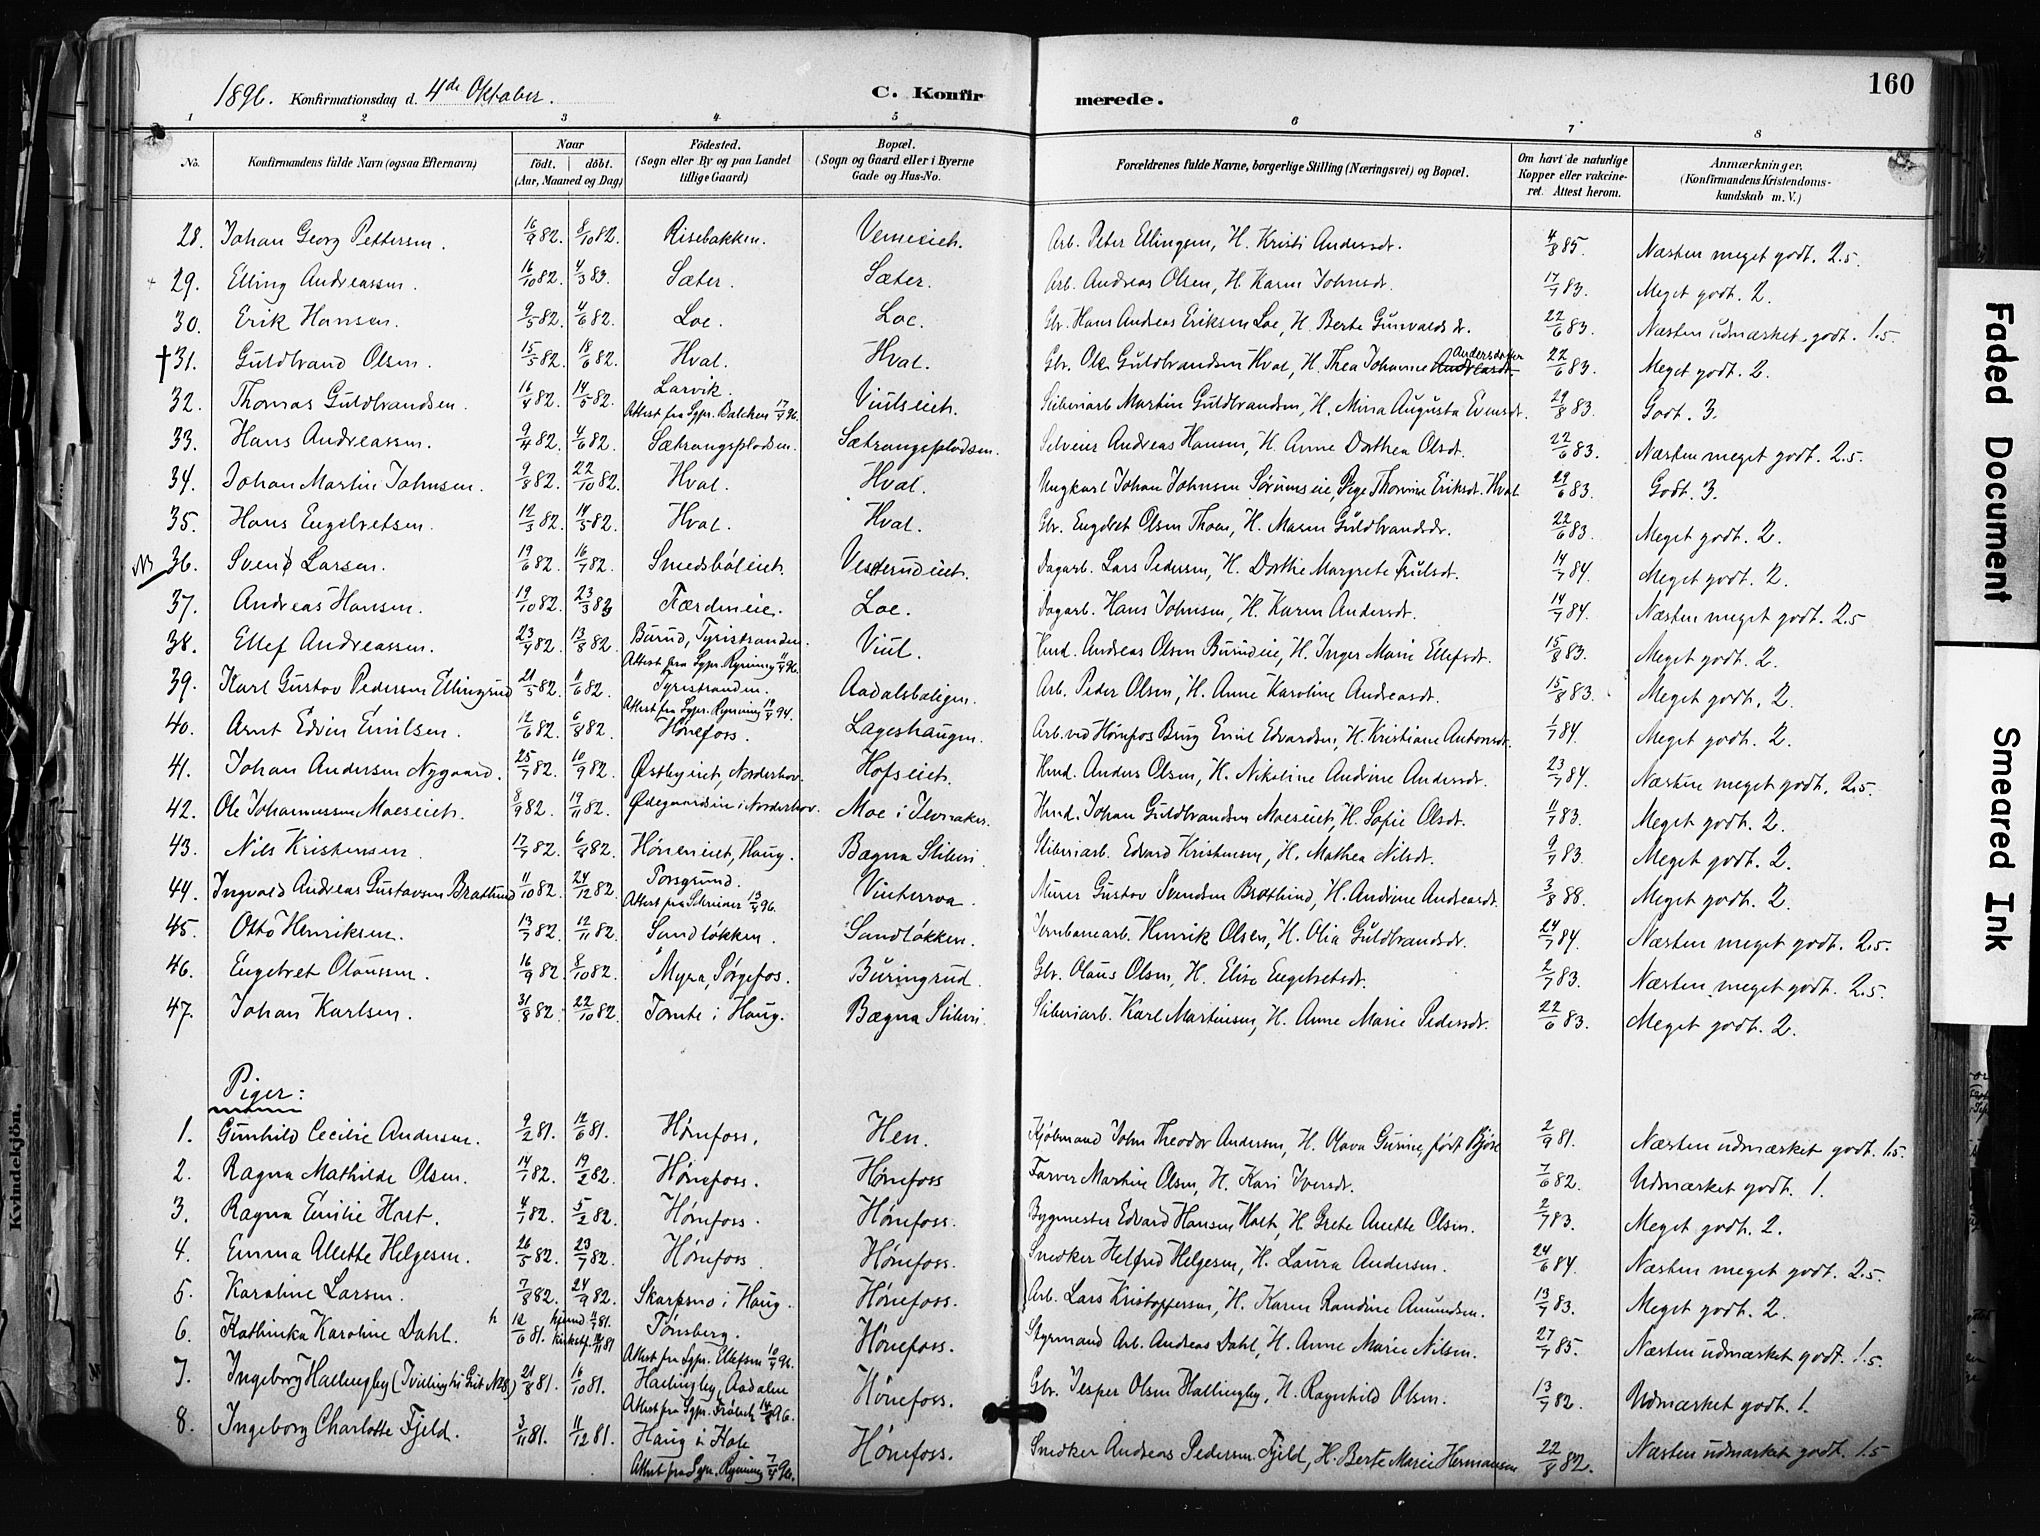 160
1896. Konfirmationsdag d. 4de Oktober. C. Konfir merede.
1 2 3 4 5 6 7 8
No. Konfirmandens fulde Navn (ogsaa Efternavn) Naar født. døbt. (Aar, Maaned og Dag) Fødested. (Sogn eller By og paa Landet tillige Gaard) Bopæl. (Sogn og Gaard eller i Byerne Gade og Hus-No. Forældrenes fulde Navne, borgerlige Stilling (Næringsvei) og Bopæl. Om havt de naturlige Kopper eller vakcineret. Attest herom. Anmærkninger. (Konfirmandens Kristendomskundskab m. V.)
28. Johan Georg Pettersen. 16/9 82. 8/10 82. Risebakken. Vemeieie. Arb. Peter Ellingsen, H. Kristi Andersdt. 4/8 85. Næsten meget godt. 2.5.
29. Elling Andreassen. 16/10 82. 4/3 83. Sæter. Sæter. Arb. Andreas Olsen, H. Karen Johnsdt. 17/7 83. Meget godt. 2.
30. Erik Hansen. 9/5 82. 4/6 82. Loe. Loe. Gbr. Hans Andreas Eriksen Loe, H. Berte Gunvaldsdr. 22/6 83. Næsten udmærket godt. 1.5
†31. Guldbrand Olsen. 15/5 82. 18/6 82. Hval. Hval. Gbr. Ole Guldbrandsen Hval, H. Thea Johanne Andersdatter 22/6 83. Meget godt. 2.
32. Thomas Guldbrandsen. 16/4 82. 14/5 82. Larvik. Attest fra Spr. Balchen 17/4 96. Viulseieh. Sliberiarb Martin Guldbrandsen, H. Mina Augusta Evensdt. 29/8 83. Godt. 3.
33. Hans Andreassen. 9/4 82. 4/6 82. Sætrangsplodsen. Sætrangsplodsen. Selveier Andreas Hansen, H. Anne Dorthea Olsdt. 22/6 83. Næsten meget godt. 2.5.
34. Johan Martin Johnsen. 9/8 82. 22/10 82. Hval. Hval. Ungkarl Johan Johnsen Sørumseie, Pige Thorine Eriksdt. Hval 29/6 83. Godt. 3.
35. Hans Engebretsen. 12/3 82. 14/5 82. Hval. Hval. Gbr. Engebret Olsen Thoen, H. Maren Guldbrandsdr. 22/6 83. Meget godt. 2.
36. Svend Larsen. 19/6 82. 16/7 82. Smedsbøleieh. Vesterudeieh. Dagarb. Lars Pedersen, H. Dorthe Margrete Trulsdt. 14/7 84. Meget godt. 2.
37. Andreas Hansen. 19/10 82. 23/3 83. Færdeneie. Loe. Dagarb. Hans Johnsen, H. Karen Andersdt. 14/7 84. Næsten meget godt. 2.5
38. Ellef Andreassen. 23/4 82. 13/8 82. Burud, Tyristranden. Attest fra Spr. Ryning 11/4 96. Viul. Hmd. Andreas Olsen Burudeie, H. Inger Marie Ellefsdt. 15/8 83. Meget godt. 2.
39. Karl Gustav Pedersen Ellingrud 21/5 82. 11/6 82. Tyristranden. Attest fra Spr. Ryning 19/4 94. Aadalsboligen. Arb. Peder Olsen, H. Anne Karoline Andreasdt. 15/8 83. Meget godt. 2.
40. Arnt Edvin Emilsen. 12/6 82. 6/8 82. Hønefoss. Lageshaugen. Arb. ved Hønefos Brug Emil Edvardsen, H. Kristiane Antonsdt. 1/7 84. Meget godt. 2.
41. Johan Andersen Nygaard. 25/7 82. 10/9 82. Østbyeiet, Norderhov. Hofseieh. Hmd. Anders Olsen, H. Nikoline Andrine Andersdt. 23/7 84. Næsten meget godt. 2.5.
42. Ole Johannessen Moeseieh. 8/9 82. 19/11 82. Ødegaardseie i Norderhov. Moe i Jevnaker. Hmd. Johan Guldbrandsen Moeseiet, H. Sofie Olsdt. 11/7 83. Meget godt. 2.
43. Nils Kristensen. 17/7 82. 6/8 82. Høneneiet, Haug. Bægna Sliberi. Sliberiarb. Edvard Kristensen, H. Mathea Nilsdt. 9/7 83. Meget godt. 2.
44. Ingvald Andreas Gustavsen Bratlund 11/10 82. 24/12 82. Porsgrund. Attest fra Schreiner 13/4 96. Vinterroa. Murer Gustav Svendsen Bratlund, H. Andrine Andreasdt. 3/8 88. Meget godt. 2.
45. Otto Henriksen. 13/7 82. 12/11 82. Sandløkken. Sandløkken. Jernbanearb. Henrik Olsen, H. Olia Guldbrandsdt. 24/7 84. Næsten meget godt. 2.5.
46. Engebret Olaussen. 16/9 82. 8/10 82. Myra, Sørgefos. Buringrud. Gbr. Olaus Olsen, H. Elise Engebretsdt. 2/7 83. Næsten meget godt. 2.5.
47. Johan Karlsen. 31/8 82. 22/10 82. Tomte i Haug. Bægna Sliberi. Sliberiarb. Karl Martinsen, H. Anne Marie Pedersdt. 22/6 83. Meget godt. 2.
Piger:
1. Gunhild Cecilie Andersen. 9/2 81. 12/6 81. Hønefoss. Hen. Kjøbmand John Theodor Andersen, H. Olava Gurine, født Gjøse 2/9 81. Næsten udmærket godt. 1.5.
2. Ragna Mathilde Olsen. 14/1 82. 19/2 82. Hønefoss. Hønefoss Farver Martin Olsen, H. Kari Iversdt. 7/6 82. Udmærket godt. 1.
3. Ragna Emilie Holt. 4/1 82. 5/2 82. Hønefoss. Hønefoss. Bygmester Edvard Hansen Holt, H. Grete Anette Olsen. 2/7 83. Meget godt. 2.
4. Emma Alette Helgesen. 26/5 82. 23/7 82. Hønefoss. Hønefoss. Snedker Helfred Helgesen, H. Laura Andersen. 24/6 84. Næsten meget godt. 2.5.
5. Karoline Larsen. 7/8 82. 24/9 82. Skarpsno i Haug. Hønefoss. Arb. Lars Kristoffersen, H. Karen Randine Amundsen. 13/7 83. Meget godt. 2.
6. Kathinka Karoline Dahl. 12/6 81. hjemd 11/7 81. kirkef. 14/11 81 Tønsberg. Attest fra Spr. Ellefsen 10/4 96. Hønefoss. Styrmand Arb. Andreas Dahl, H. Anne Marie Nilsen. 27/7 85. Næsten udmærket godt. 1.5.
7. Ingeborg Hallingby (Tvilling til Gut N28) 21/8 81. 16/10 81. Hallingby, Aadalen Attest fra Spr. Frølich 14/8 96. Hønefoss. Gbr. Jesper Olsen Hallingby, H. Ragnhild Olsen. 13/7 82. Udmærket godt. 1.
8. Ingeborg Charlotte Fjeld. 3/11 81. 11/12 81. Haug i Hole Attest fra Spr. Ryning 7/4 96. Hønefoss. Snedker Andreas Pedersen Fjeld, H. Berte Marie Hermansen 22/8 82. Næsten udmærket godt. 1.5
Kvindekjön.
Faded Document
Smeared Ink